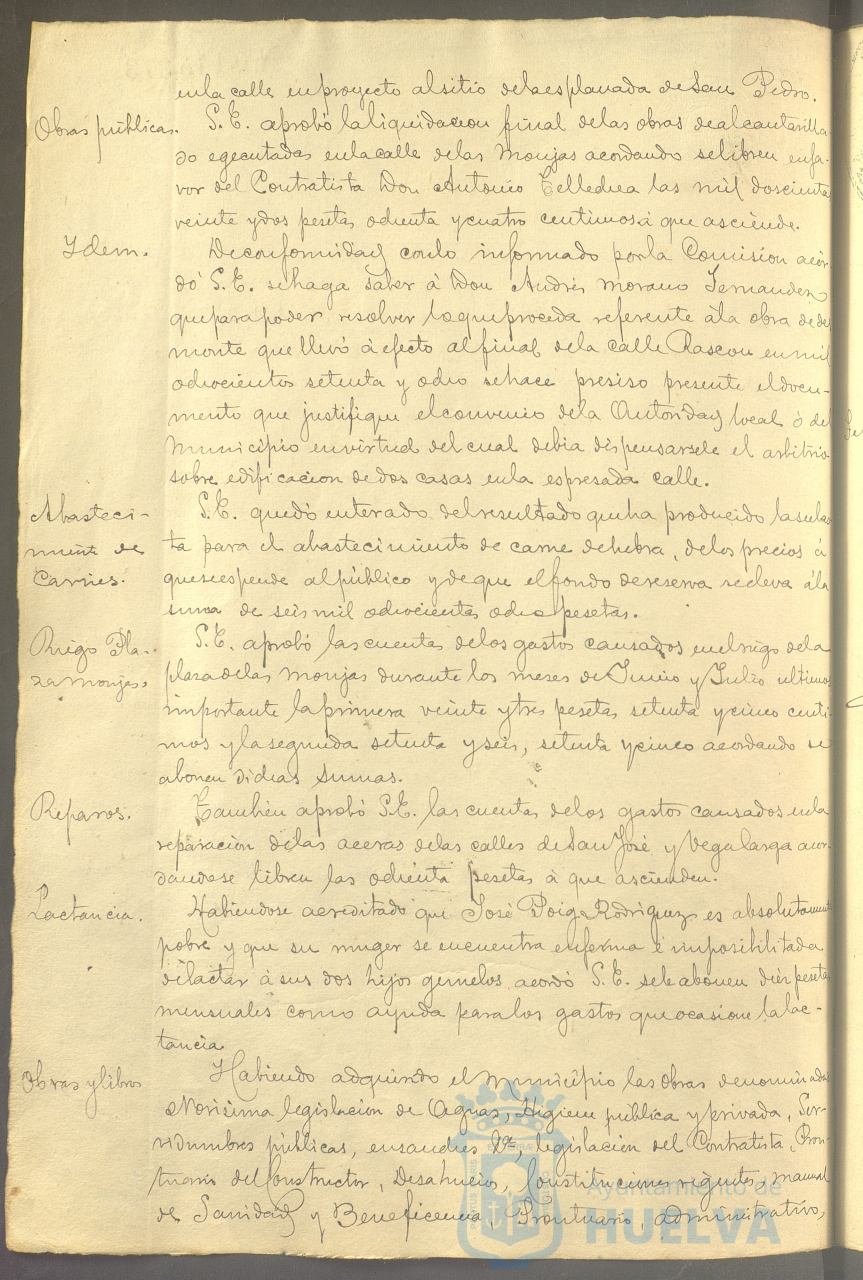 en la calle en proyecto al sitio de la esplanada de San Pedro.
Obras públicas.
S.E. aprobó la liquidacion final de las obras de alcantarilla-
do egecutadas en la calle de las Monjas acordando se libren en fa-
vor del Contratista Don Antonio las mil doscientas
veinte y dos pesetas ochenta y cuatro centimos á que asciende.
Ydem.
De conformidad con lo informado por la Comision acor-
dó S.E. se haga saber á Don Andrés Morano Fernandez
que para poder resolver lo que proceda referente á la obra de des
monte que llevó á efecto al final de la calle Rascon en mil
ochocientos setenta y ocho se hace presiso presente el docu-
mento que justifique el convenio de la Autoridad local ó del
Municipio en virtud del cual debia dispensarsele el arbitrio
sobre edificacion de dos casas en la espresada calle.
Abasteci-
miento de
Carnes.
S.E. quedó enterado del resultado que ha producido la subas
ta para el abastecimiento de carne de hebra, de los precios á
que se espende al público y de que el fondo de reserva se eleva á la
suma de seis mil ochocientas ocho pesetas.
Riego Pla-
za Monjas.
S.E. aprobó las cuentas de los gastos causados en el riego de la
plaza de las Monjas durante los meses de Junio y Julio ultimos
importante la primera veinte y tres pesetas setenta y cinco centi
mos y la segunda setenta y seis, setenta y cinco acordando se
abonen dichas sumas.
Reparos.
Tambien aprobó S.E. las cuentas de los gastos causados en la
reparacion de las aceras de las calles de San José y Vega larga acor-
dandose libren las ochenta pesetas á que ascienden.
Lactancia.
Habiendose acreditado que José Poige Rodriguez es absolutamente
pobre y que su muger se encuentra enferma é imposibilitada
de lactar á sus dos hijos gemelos acordó S.E. se le abonen diez pesetas
mensuales como ayuda para los gastos que ocasione la lac-
tancia
Obras y libros
Habiendo adquirido el municipio las obras denominadas
Novisima legislacion de Aguas, Higiene pública y privada, Ser-
vidumbres públicas, ensanches &ª, legislacion del Contratista, Pron-
tuario del Constructor, Desahucio, Constituciones vigentes, manual
de Sanidad y Beneficencia, Prontuario, administrativo,
Ayuntamiento de
HUELVA